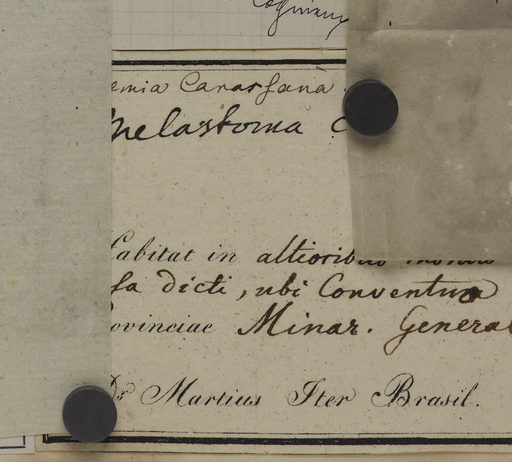 emia Carassana
Melastoma
Habitat in altioribus
sa dicti, ubi Conventus
ovinciae Minar. General
Dr Martius Iter Brasil.